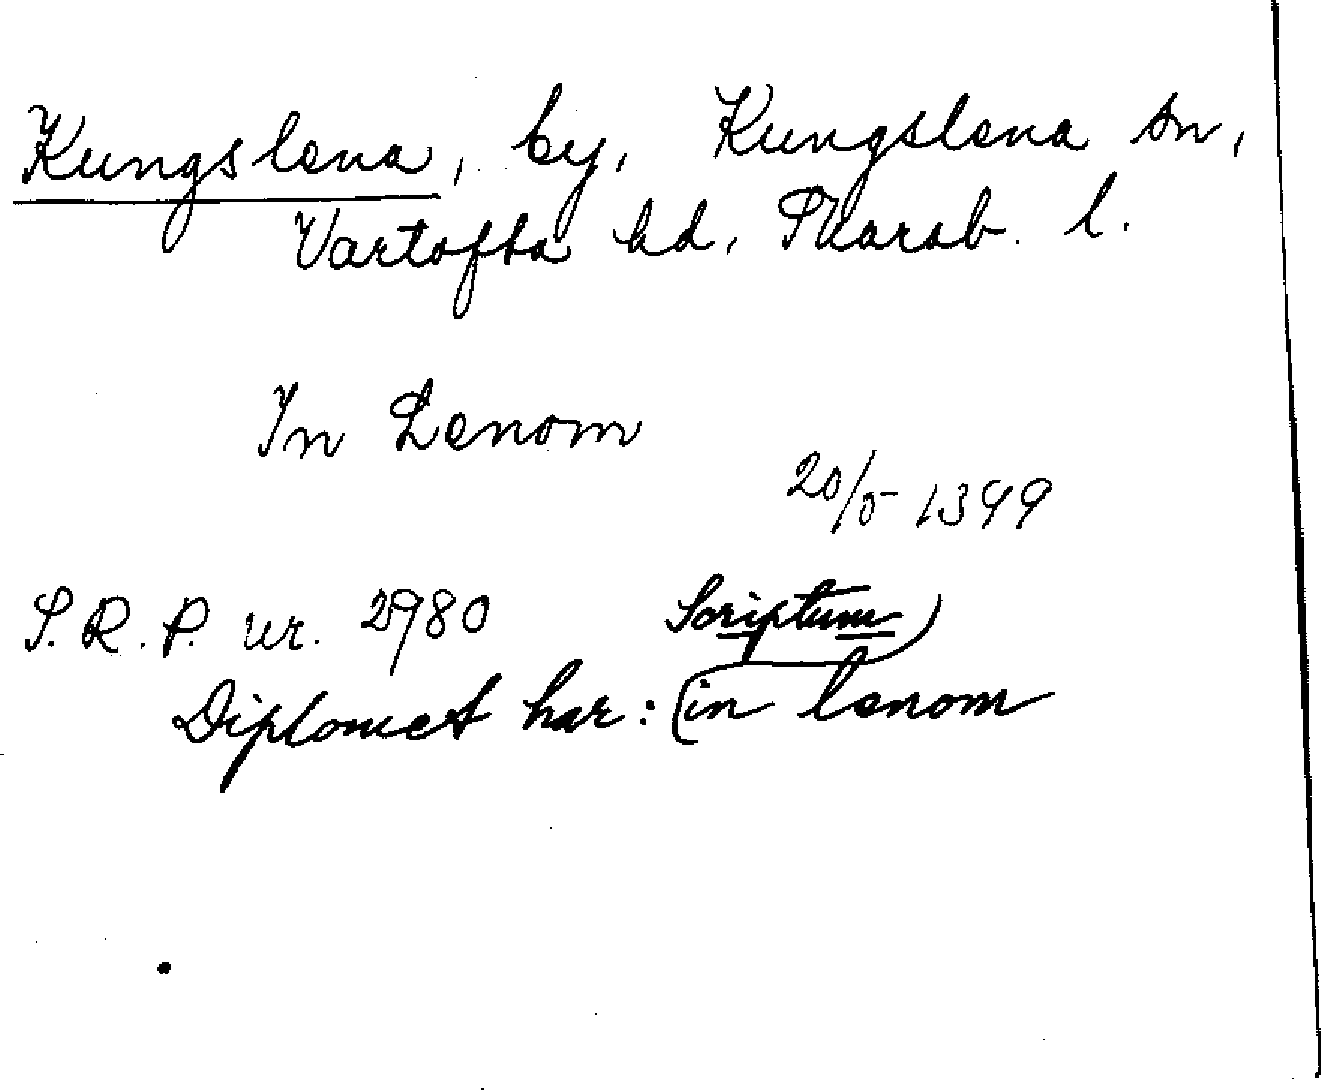 Kungslena, by, Kungslena sn,
Vartofta hd, Skarab. l.
In Lenom
20/5 1399
S.R.P. nr. 2980 Scriptum
Diplomet har: in lenom